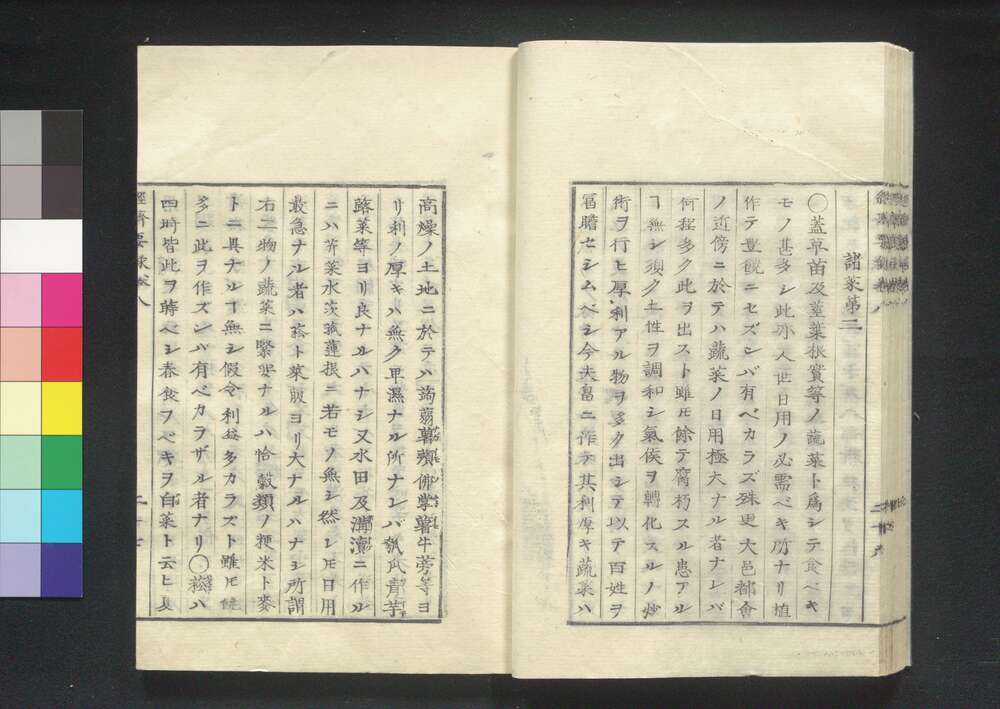 諸菜第三
○蓋草苗及莖葉根實等ノ蔬菜ト爲シテ食ベキ
モノ甚多シ此亦人世日用ノ必需ベキ所ナリ植
作テ豊饒ニセズンバ有ベカラズ殊更大邑都會
ノ近傍ニ於テハ蔬菜ノ日用極大ナル者ナレバ
何程多ク此ヲ出スト雖モ餘テ腐朽スル患アル
ヿ無シ須ク土性ヲ調和シ氣候ヲ轉化スルノ妙
術ヲ行ヒ厚利アル物ヲ多ク出シテ以テ百姓ヲ
冨贍セシムベシ今夫畠ニ作テ其利厚キ蔬菜ハ
高燥ノ土地ニ於テハ蒟蒻薯蕷佛掌薯牛蒡等ヨ
リ利ノ厚キハ無ク卑濕ナル所ナレバ甤芪青芋
蕗菜等ヨリ良ナルハナシ又水田及溝瀆ニ作ル
ニハ芹菜水茨菰蓮根ニ若モノ無シ然シモ日用
最急ナル者ハ菘ト萊菔ヨリ大ナルハナシ所謂
右二物ノ蔬菜ニ緊要ナルハ恰穀類ノ粳米ト麥
トニ異ナルヿ無シ假令利益多カラズト雖モ
多ニ此ヲ作ズンバ有ベカラザル者ナリ○菘ハ
四時皆此ヲ蒔ベシ春食フベキヲ白菜ト云ヒ夏
經濟要録 八